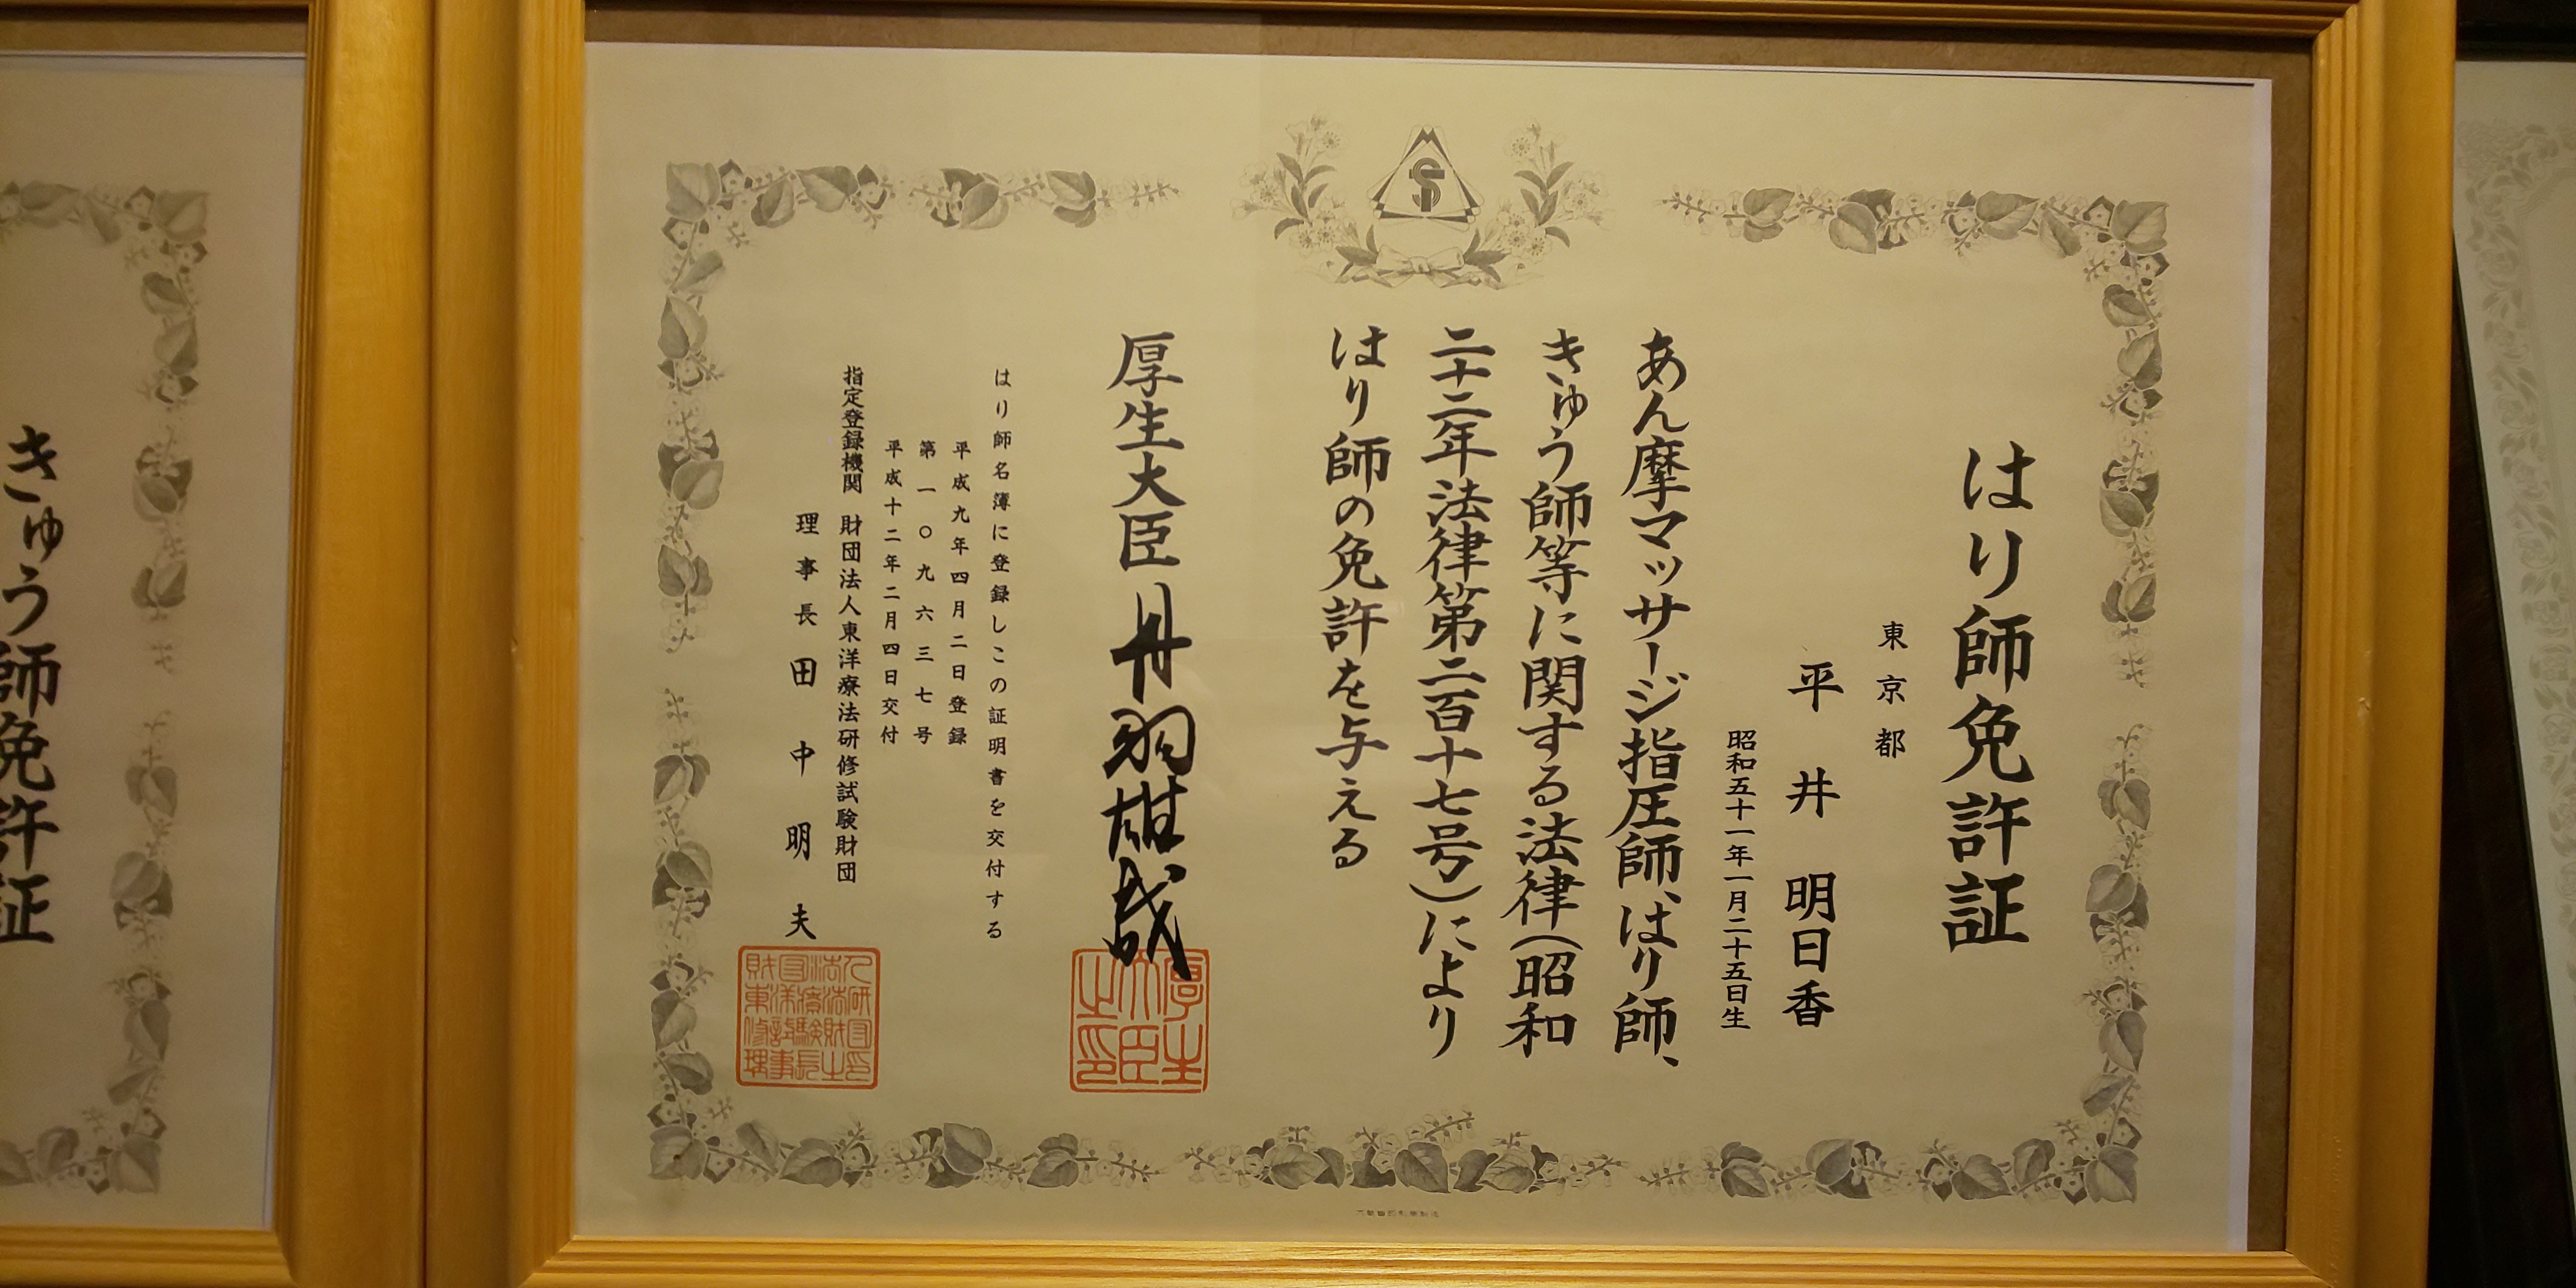 はり師免許証
東京都
平井明日香
昭和五十一年一月二十五日生
あん摩マッサージ指圧師、はり師、
きゅう師等に関する法律(昭和
二十二年法律第二百十七号)により
はり師の免許を与える
厚生大臣 丹羽雄哉
はり師名簿に登録しこの証明書を交付する
平成九年四月二日登録
第一〇九六三七号
平成十二年二月四日交付
指定登録機関 財団法人東洋療法研修試験財団
理事長 田中明夫
厚生大臣之印
きゅう師免許証